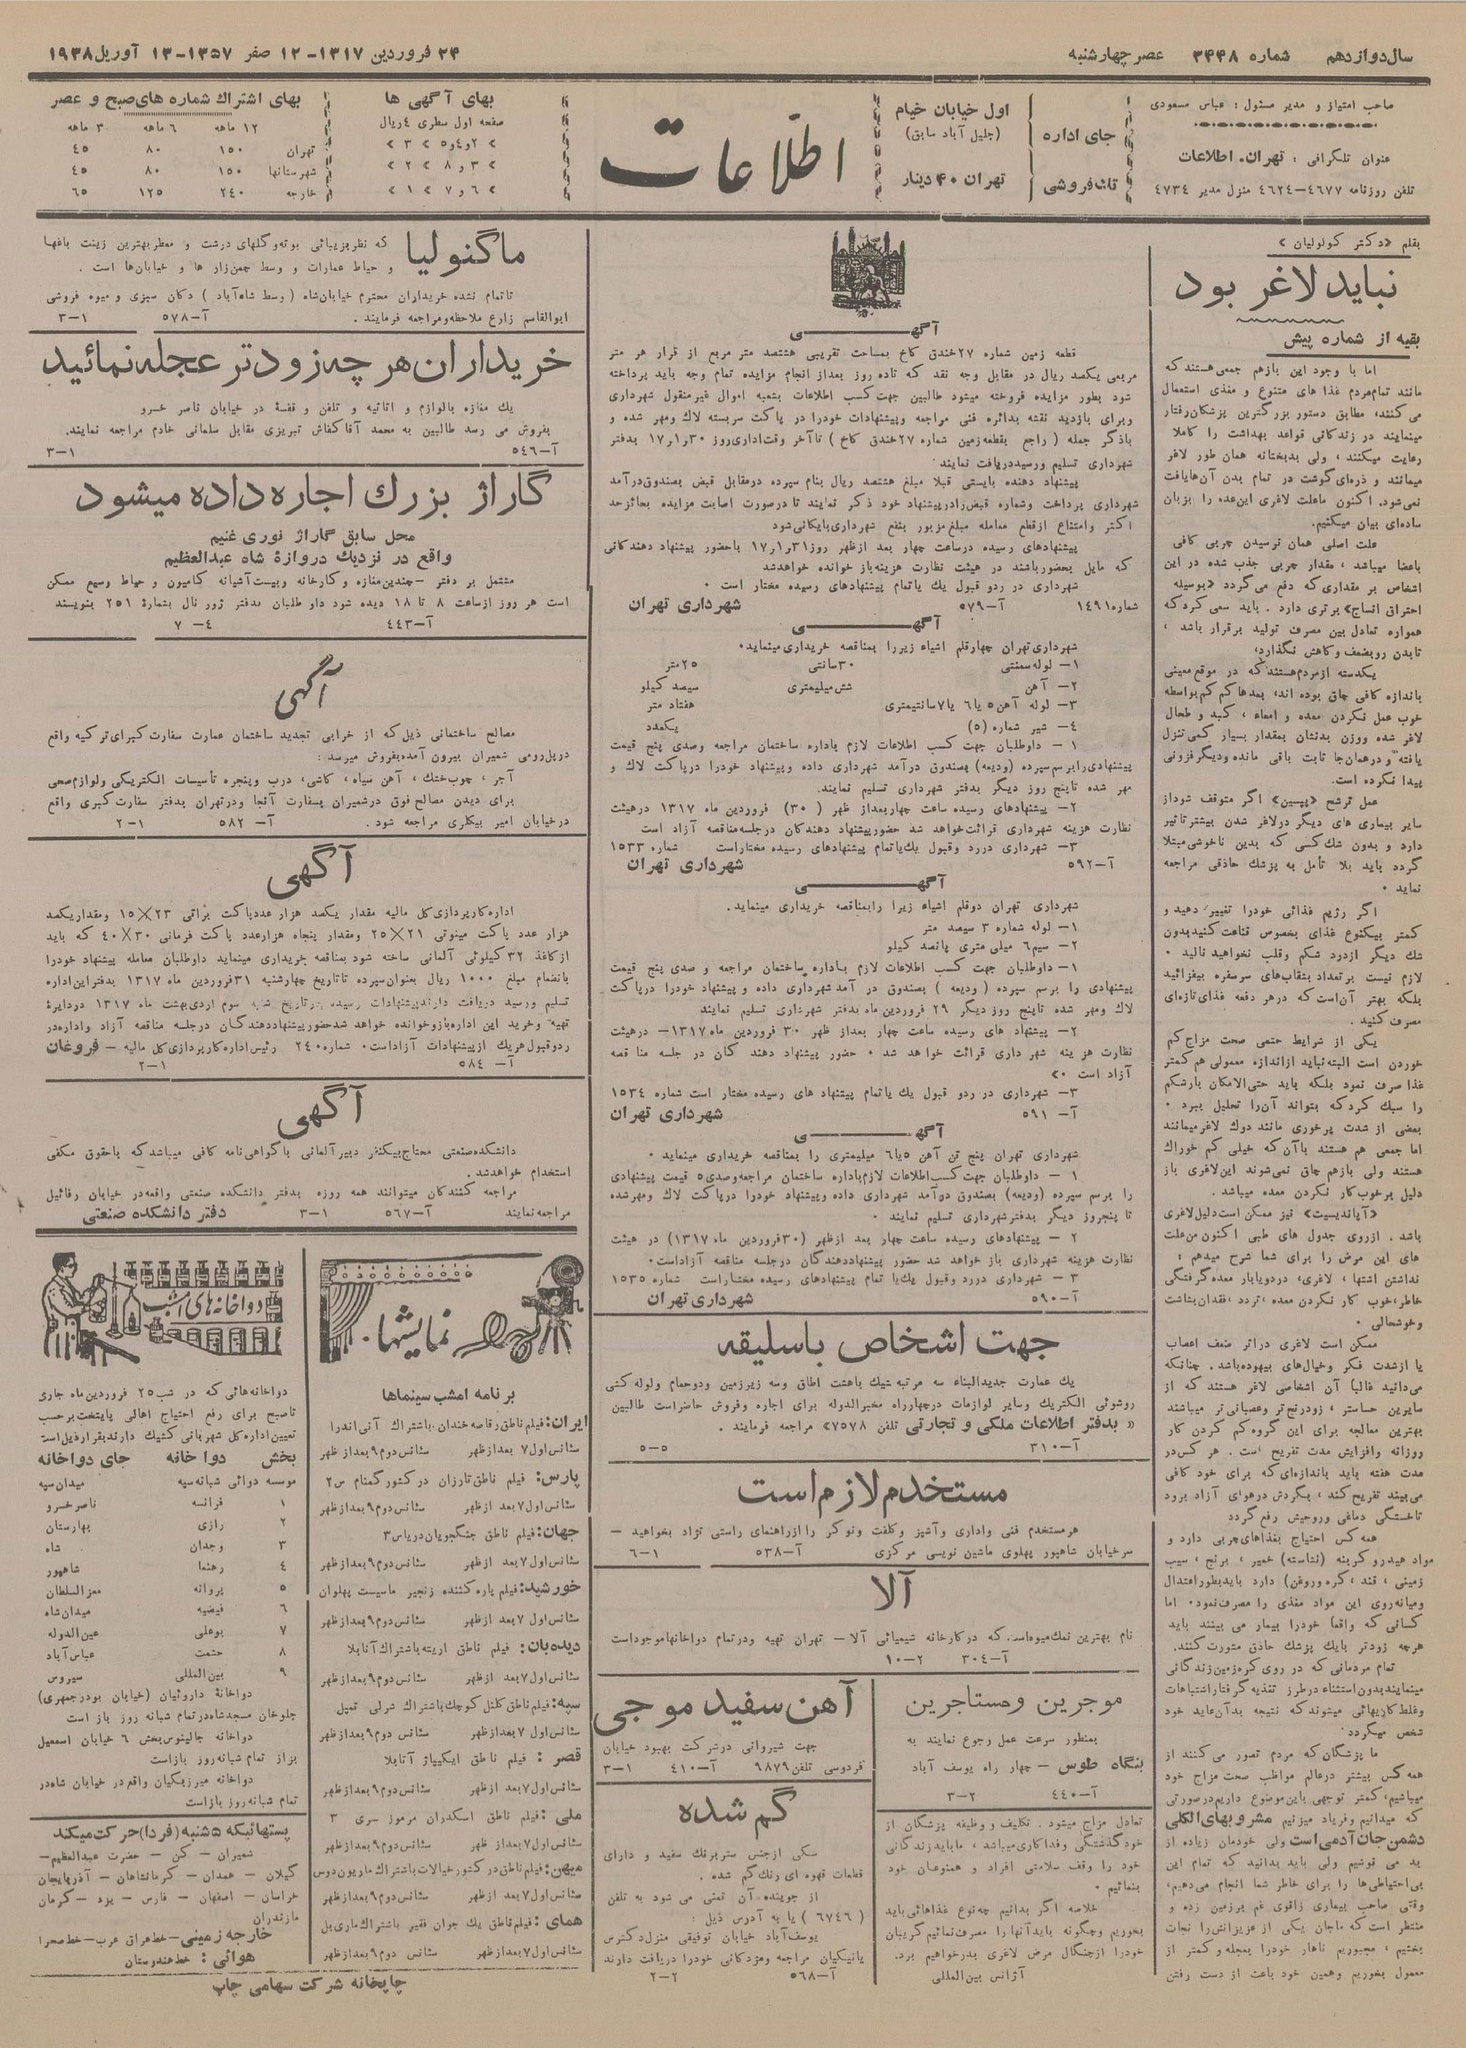 سال دوازدهم شماره ۳۴۴۸ عصر چهارشنبه
۲۴ فروردین ۱۳۱۷-۱۲ صفر ۱۳۵۷-۱۳ آوریل ۱۹۳۸
صاحب امتیاز و مدیر مسئول : عباس مسعودی
عنوان تلگرافی : تهران. اطلاعات
تلفن روزنامه ٤٦٧٧-٤٦٢٤ منزل مدیر ٤٧٣٤
جای اداره
اول خیابان خیام
(جلیل آباد سابق)
تک فروشی
تهران ۴۰ دینار
اطلاعات
بهای آگهی ها
صفحه اول سطری ٤ ریال
بهای اشتراك شماره های صبح و عصر
۱۲ ماهه ٦ ماهه ۳ ماهه
تهران ۱۵۰ ۸۰ ٤٥
شهرستانها ۱۵۰ ۸۰ ٤٥
خارجه ۲٤۰ ۱۲۵ ٦٥
نباید لاغر بود
بقیه از شماره پیش
اما با وجود این بازهم جمعی هستند که
مانند تمام مردم غذا های متنوع و مغذی استعمال
می کنند، مطابق دستور بزرگترین پزشکان رفتار
مینمایند در زندگانی قواعد بهداشت را کاملا
رعایت میکنند ، ولی بدبختانه همان طور لاغر
میمانند و ذره‌ای گوشت در تمام بدن آن‌ها یافت
نمی‌شود. اکنون ما علت لاغری این عده را بزبان
ساده‌ای بیان میکنیم.
علت اصلی همان نرسیدن چربی کافی
باعضا میباشد ، مقدار چربی جذب شده در این
اشخاص بر مقداری که دفع می گردد «بوسیله
احتراق انساج» برتری دارد . باید سعی کرد که
همواره تعادل بین مصرف تولید برقرار باشد ،
تا بدن رو بضعف و کاهش نگذارد؛
یکدسته از مردم هستند که در موقع معینی
باندازه کافی چاق بوده اند، بعدها کم کم بواسطه
خوب عمل نکردن معده و امعاء ، کبد و طحال
لاغر شده ووزن بدنشان بمقدار بسیار کمی تنزل
یافته و در همان جا ثابت باقی مانده و دیگر فزونی
پیدا نکرده است.
عمل ترشح «پپسین» اگر متوقف شود از
سایر بیماری های دیگر در لاغر شدن بیشتر تاثیر
دارد و بدون شك کسی که بدین ناخوشی مبتلا
گردد باید بلا تأمل به پزشك حاذقی مراجعه
نماید .
اگر رژیم غذائی خود را تغییر دهید و
کمتر بیکنوع غذای بخصوص قناعت کنید بدون
شك دیگر از درد شکم و قلب نخواهید نالید .
لازم نیست بر تعداد بشقاب‌های سر سفره بیفزائید
بلکه بهتر آن است که در هر دفعه غذای تازه‌ای
مصرف کنید .
یکی از شرایط حتمی صحت مزاج کم
خوردن است البته نباید از اندازه معمولی هم کمتر
غذا صرف نمود بلکه باید حتی الامکان بار شکم
را سبك کرد که بتواند آن را تحلیل ببرد .
بعضی از شدت پرخوری مانند دوك لاغر میمانند
اما جمعی هم هستند با آن که خیلی کم خوراك
هستند ولی بازهم چاق نمی‌شوند این لاغری باز
دلیل بر خوب کار نکردن معده میباشد .
«آپاندیسیت» نیز ممکن است دلیل لاغری
باشد . از روی جدول های طبی اکنون من علت
های این مرض را برای شما شرح میدهم :
و خوشحالی .
ممکن است لاغری در اثر ضعف اعصاب
یا از شدت فکر و خیال‌های بیهوده باشد. چنانکه
می‌دانید غالباً آن اشخاصی لاغر هستند که از
سایرین حساستر ، زودرنج‌تر و عصبانی تر میباشند
بهترین معالجه برای این گروه کم کردن کار
روزانه و افزایش مدت تفریح است . هر کس در
مدت هفته باید باندازه‌ای که برای خود کافی
می‌بیند تفریح کند ، بگردش در هوای آزاد برود
تا خستگی دماغی و روحیش رفع گردد
همه کس احتیاج بغذاهای چربی دارد و
مواد هیدرو کربنه (نشاسته) خمیر ، برنج ، سیب
زمینی ، قند ، کره و روغن) دارد باید بطور اعتدال
و میانه‌روی این مواد مغذی را مصرف نمود؛ اما
کسانی که واقعاً خود را بیمار می بینند باید
هرچه زودتر با یك پزشك حاذق مشورت کنند.
تمام مردمانی که در روی کره زمین زندگانی
مینمایند بدون استثناء در طرز تغذیه گرفتار اشتباهات
و غلط کاریهائی میشوند که نتیجه بد آن عاید خود
شخص میگردد
ما پزشکان که مردم تصور می کنند از
همه کس بیشتر در عالم مواظب صحت مزاج خود
میباشیم، کمتر توجهی باین موضوع داریم در صورتی
که میدانیم و فریاد میزنیم مشروبهای الکلی
دشمن جان آدمی است ولی خودمان زیاده از
حد می نوشیم ولی باید بدانید که تمام این
بی‌احتیاطی‌ها را برای خاطر شما انجام می‌دهیم،
بخشیم ، مجبوریم ناهار خود را بعجله و کمتر از
معمول بخوریم و همین خود باعث از دست رفتن
تعادل مزاج میشود . تکلیف و وظیفه پزشکان از
خود گذشتگی و فداکاری میباشد ، ما باید زندگانی
خود را وقف سلامتی افراد و همنوعان خود
بنمائیم .
خلاصه اگر بدانیم چه نوع غذاهائی باید
بخوریم و چگونه باید آنها را مصرف نمائیم گریبان
خود را از چنگال مرض لاغری بدر خواهیم برد.
آژانس بین‌المللی
آگهی
قطعه زمین شماره ۲۷ خندق کاخ بمساحت تقریبی هشتصد متر مربع از قرار هر متر
مربعی یکصد ریال در مقابل وجه نقد که تا ده روز بعد از انجام مزایده تمام وجه باید پرداخته
شود بطور مزایده فروخته میشود طالبین جهت کسب اطلاعات بشعبه اموال غیر منقول شهرداری
و برای بازدید نقشه بدائره فنی مراجعه و پیشنهادات خود را در پاکت سربسته لاك و مهر شده و
با ذکر جمله ( راجع بقطعه زمین شماره ۲۷ خندق کاخ ) تا آخر وقت اداری روز ۳۰ر۱ر۱۷ بدفتر
شهرداری تسلیم و رسید دریافت نمایند
پیشنهاد دهنده بایستی قبلا مبلغ هشتصد ریال بنام سپرده در مقابل قبض بصندوق درآمد
شهرداری پرداخت و شماره قبض را در پیشنهاد خود ذکر نمایند تا در صورت اصابت مزایده بحائز حد
اکثر و امتناع از قطع معامله مبلغ مزبور بنفع شهرداری بایگانی شود
پیشنهادهای رسیده در ساعت چهار بعد از ظهر روز ۳۱ر۱ر۱۷ با حضور پیشنهاد دهندگانی
که مایل بحضور باشند در هیئت نظارت هزینه باز خوانده خواهد شد
شهرداری در رد و قبول یك یا تمام پیشنهادهای رسیده مختار است .
شماره ۱٤۹۱ آ-۵۷۹ شهرداری تهران
آگهی
شهرداری تهران چهار قلم اشیاء زیر را بمناقصه خریداری مینماید.
۱- لوله سمنتی ۳۰ سانتی ۲۵ متر
۲- آهن شش میلیمتری سیصد کیلو
۳- لوله آهن ۵ یا ٦ یا ۷ سانتیمتری هفتاد متر
٤- شیر شماره (۵) یکعدد
۱ - داوطلبان جهت کسب اطلاعات لازم باداره ساختمان مراجعه و صدی پنج قیمت
پیشنهادی را برسم سپرده (ودیعه) بصندوق درآمد شهرداری داده و پیشنهاد خود را در پاکت لاك و
مهر شده تا پنج روز دیگر بدفتر شهرداری تسلیم نمایند.
۲- پیشنهادهای رسیده ساعت چهار بعد از ظهر (۳۰) فروردین ماه ۱۳۱۷ در هیئت
نظارت هزینه شهرداری قرائت خواهد شد حضور پیشنهاد دهندگان در جلسه مناقصه آزاد است
۳- شهرداری در رد و قبول یك یا تمام پیشنهادهای رسیده مختار است شماره ۱۵۳۳
آ-۵۹۲ شهرداری تهران
آگهی
شهرداری تهران دو قلم اشیاء زیر را بمناقصه خریداری مینماید.
۱- لوله شماره ۳ سیصد متر
۲- سیم ٦ میلی متری پانصد کیلو
۱- داوطلبان جهت کسب اطلاعات لازم باداره ساختمان مراجعه و صدی پنج قیمت
پیشنهادی را برسم سپرده ( ودیعه ) بصندوق در آمد شهرداری داده و پیشنهاد خود را در پاکت
لاك و مهر شده تا پنج روز دیگر ۲۹ فروردین ماه بدفتر شهرداری تسلیم نمایند
۲- پیشنهاد های رسیده ساعت چهار بعد از ظهر ۳۰ فروردین ماه ۱۳۱۷- در هیئت
نظارت هزینه شهرداری قرائت خواهد شد . حضور پیشنهاد دهندگان در جلسه مناقصه
آزاد است
۳- شهرداری در رد و قبول یك یا تمام پیشنهاد های رسیده مختار است شماره ۱۵۳٤
آ- ۵۹۱ شهرداری تهران
آگهی
شهرداری تهران پنج تن آهن ۵ یا ٦ میلیمتری را بمناقصه خریداری مینماید .
۱ - داوطلبان جهت کسب اطلاعات لازم باداره ساختمان مراجعه و صدی ۵ قیمت پیشنهادی
را برسم سپرده (ودیعه) بصندوق درآمد شهرداری داده و پیشنهاد خود را در پاکت لاك و مهر شده
تا پنجروز دیگر بدفتر شهرداری تسلیم نمایند .
۲ - پیشنهادهای رسیده ساعت چهار بعد از ظهر (۳۰ فروردین ماه ۱۳۱۷) در هیئت
نظارت هزینه شهرداری باز خواهد شد حضور پیشنهاد دهندگان در جلسه مناقصه آزاد است.
۳ - شهرداری در رد و قبول یك یا تمام پیشنهادهای رسیده مختار است شماره ۱۵۳۵
آ-۵۹۰ شهرداری تهران
جهت اشخاص باسلیقه
یك عمارت جدیدالبناء سه مرتبه شیك با هشت اطاق و سه زیرزمین و دو حمام و لوله کشی
روشنائی الکتریك و سایر لوازمات در چهار راه مخبرالدوله برای اجاره و فروش حاضر است طالبین
« بدفتر اطلاعات ملکی و تجارتی تلفن ۷۵۷۸» مراجعه فرمایند .
آ-۳۱۰ ۵-۵
مستخدم لازم است
هر مستخدم فنی و اداری و آشپز و کلفت و نوکر را از راهنمای راستی نژاد بخواهید -
سر خیابان شاهپور پهلوی ماشین نویسی مرکزی آ-۵۳۸ ۱-٦
آلا
نام بهترین نمك میوه است. که در کارخانه شیمیائی آلا- تهران تهیه و در تمام دواخانها موجود است
آ-۳۰٤ ۲-۱۰
موجرین و مستاجرین
بمنظور سرعت عمل رجوع نمایند به
بنگاه طوس - چهار راه یوسف آباد
آ-٤٤۰ ۲-۳
آهن سفید موجی
جهت شیروانی در شرکت بهبود خیابان
فردوسی تلفن ۹۸۷۹ آ-٤۱۰ ۱-۳
گم شده
سگی از جنس ستر برنگ سفید و دارای
قطعات قهوه ای رنگ گم شده .
از جوینده آن تمنی می شود به تلفن
( ٦٧٤٦ ) یا به آدرس ذیل :
یوسف‌آباد خیابان توفیقی منزل دکترس
پانیکیان مراجعه و مژدگانی خود را دریافت دارند
آ-۵٦۸ ۲-۲
ماگنولیا
که نظر بزیبائی بوته و گلهای درشت و معطر بهترین زینت باغها
و حیاط عمارات و وسط چمن‌زار ها و خیابان‌ها است .
تا تمام نشده خریداران محترم خیابان شاه ( وسط شاه‌آباد ) دکان سبزی و میوه فروشی
ابوالقاسم زارع ملاحظه و مراجعه فرمایند . آ-۵۷۸ ۱-۳
خریداران هرچه زودتر عجله نمائید
یك مغازه با لوازم و اثاثیه و تلفن و قفسه در خیابان ناصر خسرو
بفروش می رسد طالبین به محمد آقا کفاش تبریزی مقابل سلمانی خادم مراجعه نمایند.
آ-۵٤٦ ۱-۳
گاراژ بزرك اجاره داده میشود
محل سابق گاراژ نوری غنیم
واقع در نزدیك دروازهٔ شاه عبدالعظیم
مشتمل بر دفتر - چندین مغازه و کارخانه و بیست آشیانه کامیون و حیاط وسیع ممکن
است هر روز از ساعت ۸ تا ۱۸ دیده شود داوطلبان بدفتر ژورنال بشمارهٔ ۲۵۱ بنویسند
آ-٤٤۳ ٤-۷
آگهی
مصالح ساختمانی ذیل که از خرابی تجدید ساختمان عمارت سفارت کبرای ترکیه واقع
در پل رومی شمیران بیرون آمده بفروش میرسد :
آجر ، چوب خشك ، آهن سیاه ، کاشی ، درب و پنجره تأسیسات الکتریکی و لوازم صحی
برای دیدن مصالح فوق در شمیران بسفارت آنجا و در تهران بدفتر سفارت کبری واقع
در خیابان امیر بیگلری مراجعه شود . آ- ۵۸۲ ۱-۲
آگهی
اداره کارپردازی کل مالیه مقدار یکصد هزار عدد پاکت براتی ۲۳×۱۵ و مقدار یکصد
هزار عدد پاکت مینوتی ۲۱×۲۵ و مقدار پنجاه هزار عدد پاکت فرمانی ۳۰×٤۰ که باید
از کاغذ ۳۲ کیلوئی آلمانی ساخته شود بمناقصه خریداری مینماید داوطلبان معامله پیشنهاد خود را
بانضمام مبلغ ۱۰۰۰ ریال بعنوان سپرده تا تاریخ چهارشنبه ۳۱ فروردین ماه ۱۳۱۷ بدفتر این اداره
تسلیم و رسید دریافت دارند پیشنهادات رسیده در تاریخ شنبه سوم اردی‌بهشت ماه ۱۳۱۷ در دایرهٔ
تهیه و خرید این اداره باز و خوانده خواهد شد حضور پیشنهاد دهندگان در جلسه مناقصه آزاد و اداره در
رد و قبول هر یك از پیشنهادات آزاد است. شماره ۲٤۰ رئیس اداره کارپردازی کل مالیه - فروغان
آ- ۵۸٤ ۱-۲
آگهی
دانشکده صنعتی محتاج بیکنفر دبیر آلمانی با گواهی نامه کافی میباشد که با حقوق مکفی
استخدام خواهد شد .
مراجعه کنندگان میتوانند همه روزه بدفتر دانشکده صنعتی واقعه در خیابان رفائیل
مراجعه نمایند آ-۵٦۷ ۱-۳ دفتر دانشکده صنعتی
نمایشها.
برنامه امشب سینماها
ایران: فیلم ناطق رقاصه خندان. باشتراك آنی اندرا
سئانس اول ۷ بعد از ظهر سئانس دوم ۹ بعد از ظهر
پارس: فیلم ناطق تارزان در کشور گمنام س۲
سئانس اول ۷ بعد از ظهر سئانس دوم ۹ بعد از ظهر
جهان: فیلم ناطق جنگجویان دریا س۳
سئانس اول ۷ بعد از ظهر سئانس دوم ۹ بعد از ظهر
خورشید: فیلم پاره کننده زنجیر ماسیست پهلوان
سئانس اول ۷ بعد از ظهر سئانس دوم ۹ بعد از ظهر
دیده‌بان: فیلم ناطق اریته باشتراك آنابلا
سئانس اول ۷ بعد از ظهر سئانس دوم ۹ بعد از ظهر
سپه: فیلم ناطق کلنل کوچك باشتراك شرلی تمپل
سئانس اول ۷ بعد از ظهر سئانس دوم ۹ بعد از ظهر
قصر : فیلم ناطق اکیپاژ آنابلا
سئانس اول ۷ بعد از ظهر سئانس دوم ۹ بعد از ظهر
ملی : فیلم ناطق اسکدران مرموز سری ۳
سئانس اول ۷ بعد از ظهر سئانس دوم ۹ بعد از ظهر
میهن: فیلم ناطق در کشور خیالات باشتراك ماریون دوس
سئانس اول ۷ بعد از ظهر سئانس دوم ۹ بعد از ظهر
همای : فیلم ناطق یك جوان فقیر باشتراك ماری بل
سئانس اول ۷ بعد از ظهر سئانس دوم ۹ بعد از ظهر
دواخانه های امشب
دواخانه‌هائی که در شب ۲۵ فروردین ماه جاری
تا صبح برای رفع احتیاج اهالی پایتخت بر حسب
تعیین اداره کل شهربانی کشیك دارند بقرار ذیل است
بخش دوا خانه جای دواخانه
موسسه دوائی شبانه سپه میدان سپه
۱ فرانسه ناصر خسرو
۲ رازی بهارستان
۳ وجدان شاه
٤ رهنما شاهپور
۵ پروانه معزالسلطان
٦ فیضیه میدان شاه
۷ بوعلی عین الدوله
۸ حشمت عباس آباد
۹ بین‌المللی سیروس
دواخانهٔ داروئیان (خیابان بوذرجمهری)
جلوخان مسجد شاه در تمام شبانه روز باز است
دواخانه جالینوس بخش ٦ خیابان اسمعیل
بزاز تمام شبانه روز باز است
دواخانه میرزیکیان واقع در خیابان شاه در
تمام شبانه روز باز است
پستهائیکه ۵شنبه (فردا) حرکت میکند
شمیران - کن - حضرت عبدالعظیم-
گیلان - همدان - کرمانشاهان - آذربایجان
خراسان - اصفهان - فارس - یزد - کرمان
مازندران
خارجه زمینی- خط عراق عرب- خط صحرا
هوائی : خط هندوستان
چاپخانه شرکت سهامی چاپ